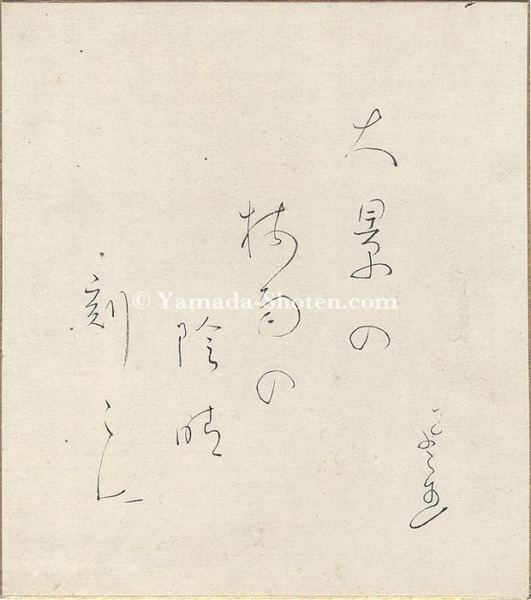 大景の
梅雨の
陰晴
刻々に
© Yamada-Shoten.com